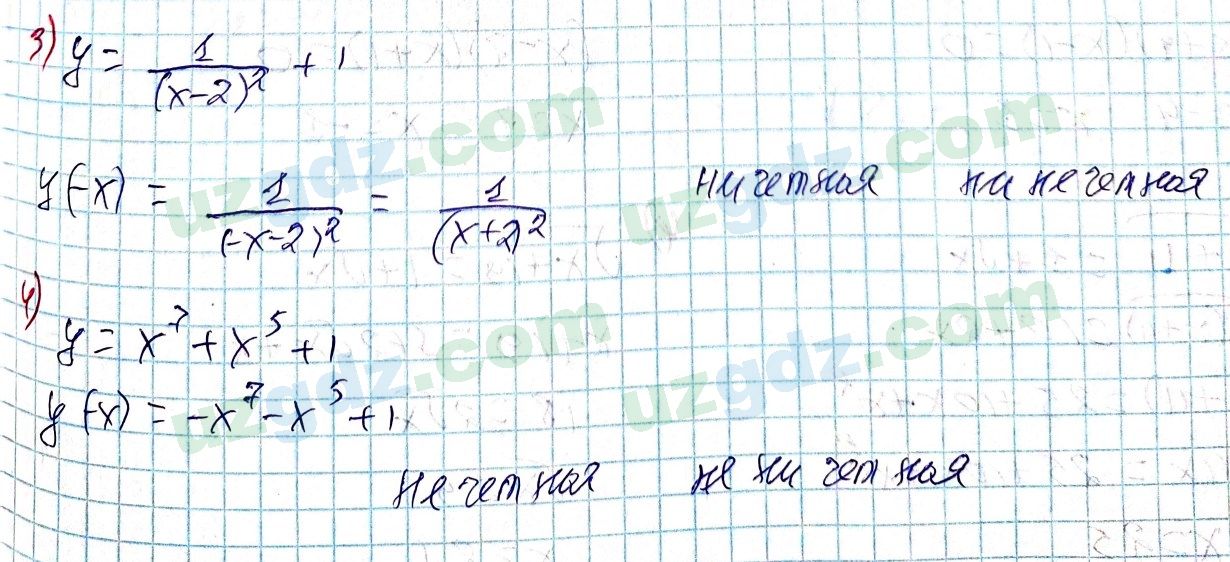 3) y = 1/(x-2)² + 1
y(-x) = 1/(-x-2)² = 1/(x+2)² ни четная ни нечетная
4)
y = x⁷ + x⁵ + 1
y(-x) = -x⁷ - x⁵ + 1
не четная не ни четная
uzgdz.com
uzgdz.com
uzgdz.com
uzgdz.com